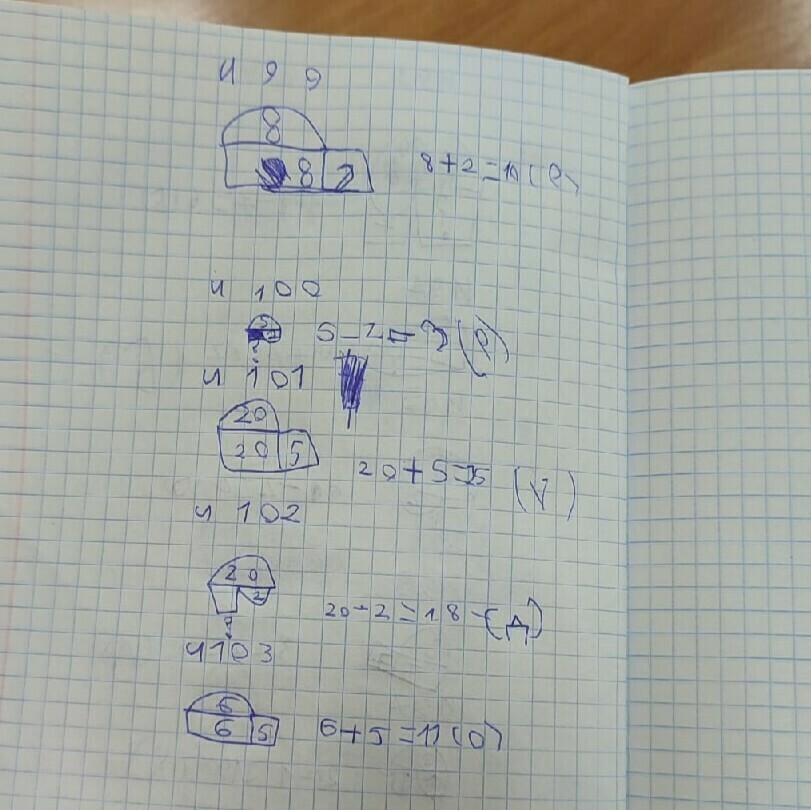 ч 99
8
8 2 8+2=10(р)
ч 100
5-2=3(р)
?
ч 101
20
20 5 20+5=25 (У)
ч 102
20
2 20-2=18-(д)
?
ч 103
6
6 5 6+5=11(о)